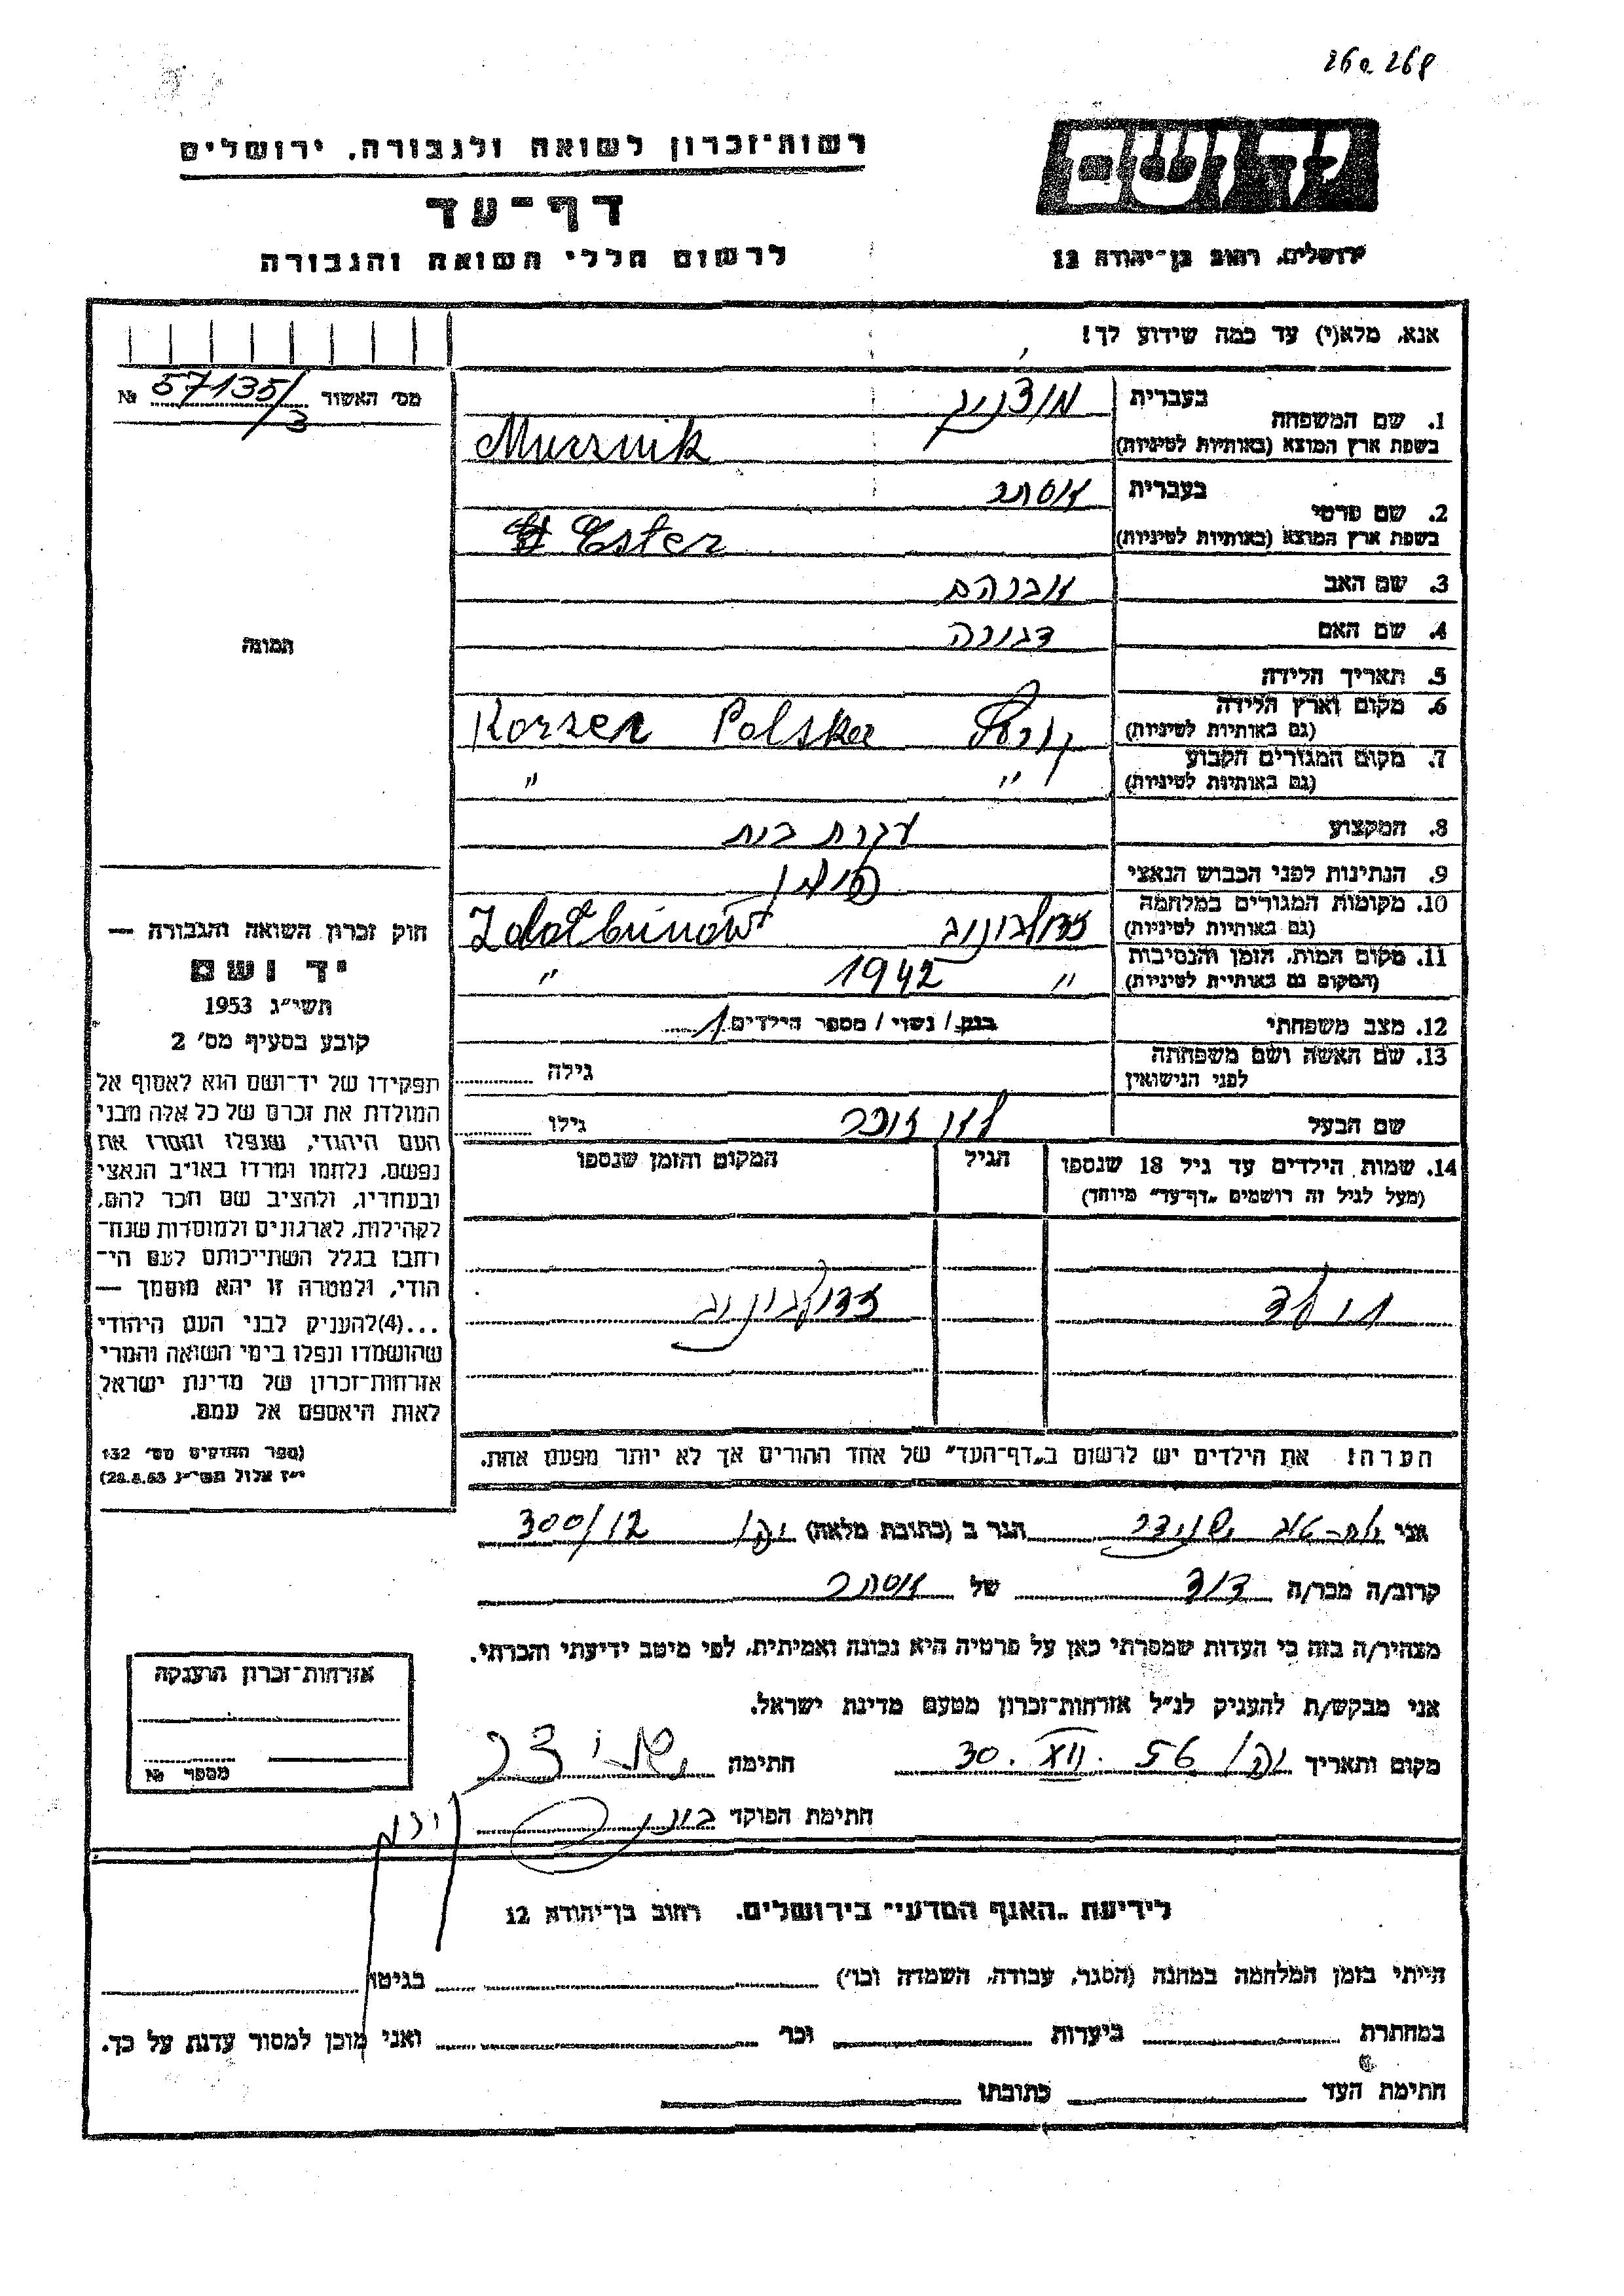 26a 268
יד ושם
ירושלים, רחוב בן־יהודה 12
רשות־זכרון לשואה ולגבורה, ירושלים
דף־עד
לרשום חללי השואה והגבורה
אנא, מלא(י) עד כמה שידוע לך!
מס׳ האשור 57135/3 №
1. שם המשפחה בעברית
בשפת ארץ המוצא (באותיות לטיניות) Mucznik
2. שם פרטי בעברית אסתר
בשפת ארץ המוצא (באותיות לטיניות) Ester
3. שם האב אברהם
4. שם האם דבורה
5. תאריך הלידה
6. מקום וארץ הלידה Korzec Polska
(גם באותיות לטיניות)
7. מקום המגורים הקבוע " "
(גם באותיות לטיניות)
8. המקצוע עקרת בית
9. הנתינות לפני הכבוש הנאצי פולין
10. מקומות המגורים במלחמה זדולבונוב Zdołbunów
(גם באותיות לטיניות)
11. מקום המות, הזמן והנסיבות " 1942 "
(המקום גם באותיות לטיניות)
12. מצב משפחתי רווק / נשוי / מספר הילדים 1
13. שם האשה ושם משפחתה גילה
לפני הנישואין
שם הבעל גילו
14. שמות הילדים עד גיל 18 שנספו הגיל המקום והזמן שנספו
(מעל לגיל זה רושמים „דף־עד״ מיוחד)
זדולבונוב
הערה! את הילדים יש לרשום ב„דף־העד״ של אחד ההורים אך לא יותר מפעם אחת.
התמונה
חוק זכרון השואה והגבורה —
יד ושם
תשי״ג 1953
קובע בסעיף מס׳ 2
תפקידו של יד־ושם הוא לאסוף אל
המולדת את זכרם של כל אלה מבני
העם היהודי, שנפלו ומסרו את
נפשם, נלחמו ומרדו באויב הנאצי
ובעוזריו, ולהציב שם וזכר להם,
לקהילות, לארגונים ולמוסדות שנח־
רבו בגלל השתייכותם לעם הי־
הודי, ולמטרה זו יהא מוסמך —
...(4) להעניק לבני העם היהודי
שהושמדו ונפלו בימי השואה והמרי
אזרחות־זכרון של מדינת ישראל
לאות היאספם אל עמם.
(ספר החוקים מס׳ 132
י״ז אלול תשי״ג 28.8.53)
אני הגר ב (כתובת מלאה) 300/12
קרוב/ה מכר/ה דוד של אסתר
מצהיר/ה בזה כי העדות שמסרתי כאן על פרטיה היא נכונה ואמיתית, לפי מיטב ידיעתי והכרתי.
אני מבקש/ת להעניק לנ״ל אזרחות־זכרון מטעם מדינת ישראל.
מקום ותאריך 30. XII. 56 חתימה
חתימת הפוקד
אזרחות־זכרון הוענקה
מספר №
לידיעת „האגף המדעי״ בירושלים, רחוב בן־יהודה 12
הייתי בזמן המלחמה במחנה (הסגר, עבודה, השמדה וכו׳) בגיטו
במחתרת ביערות וכו׳ ואני מוכן למסור עדות על כך.
חתימת העד כתובתו